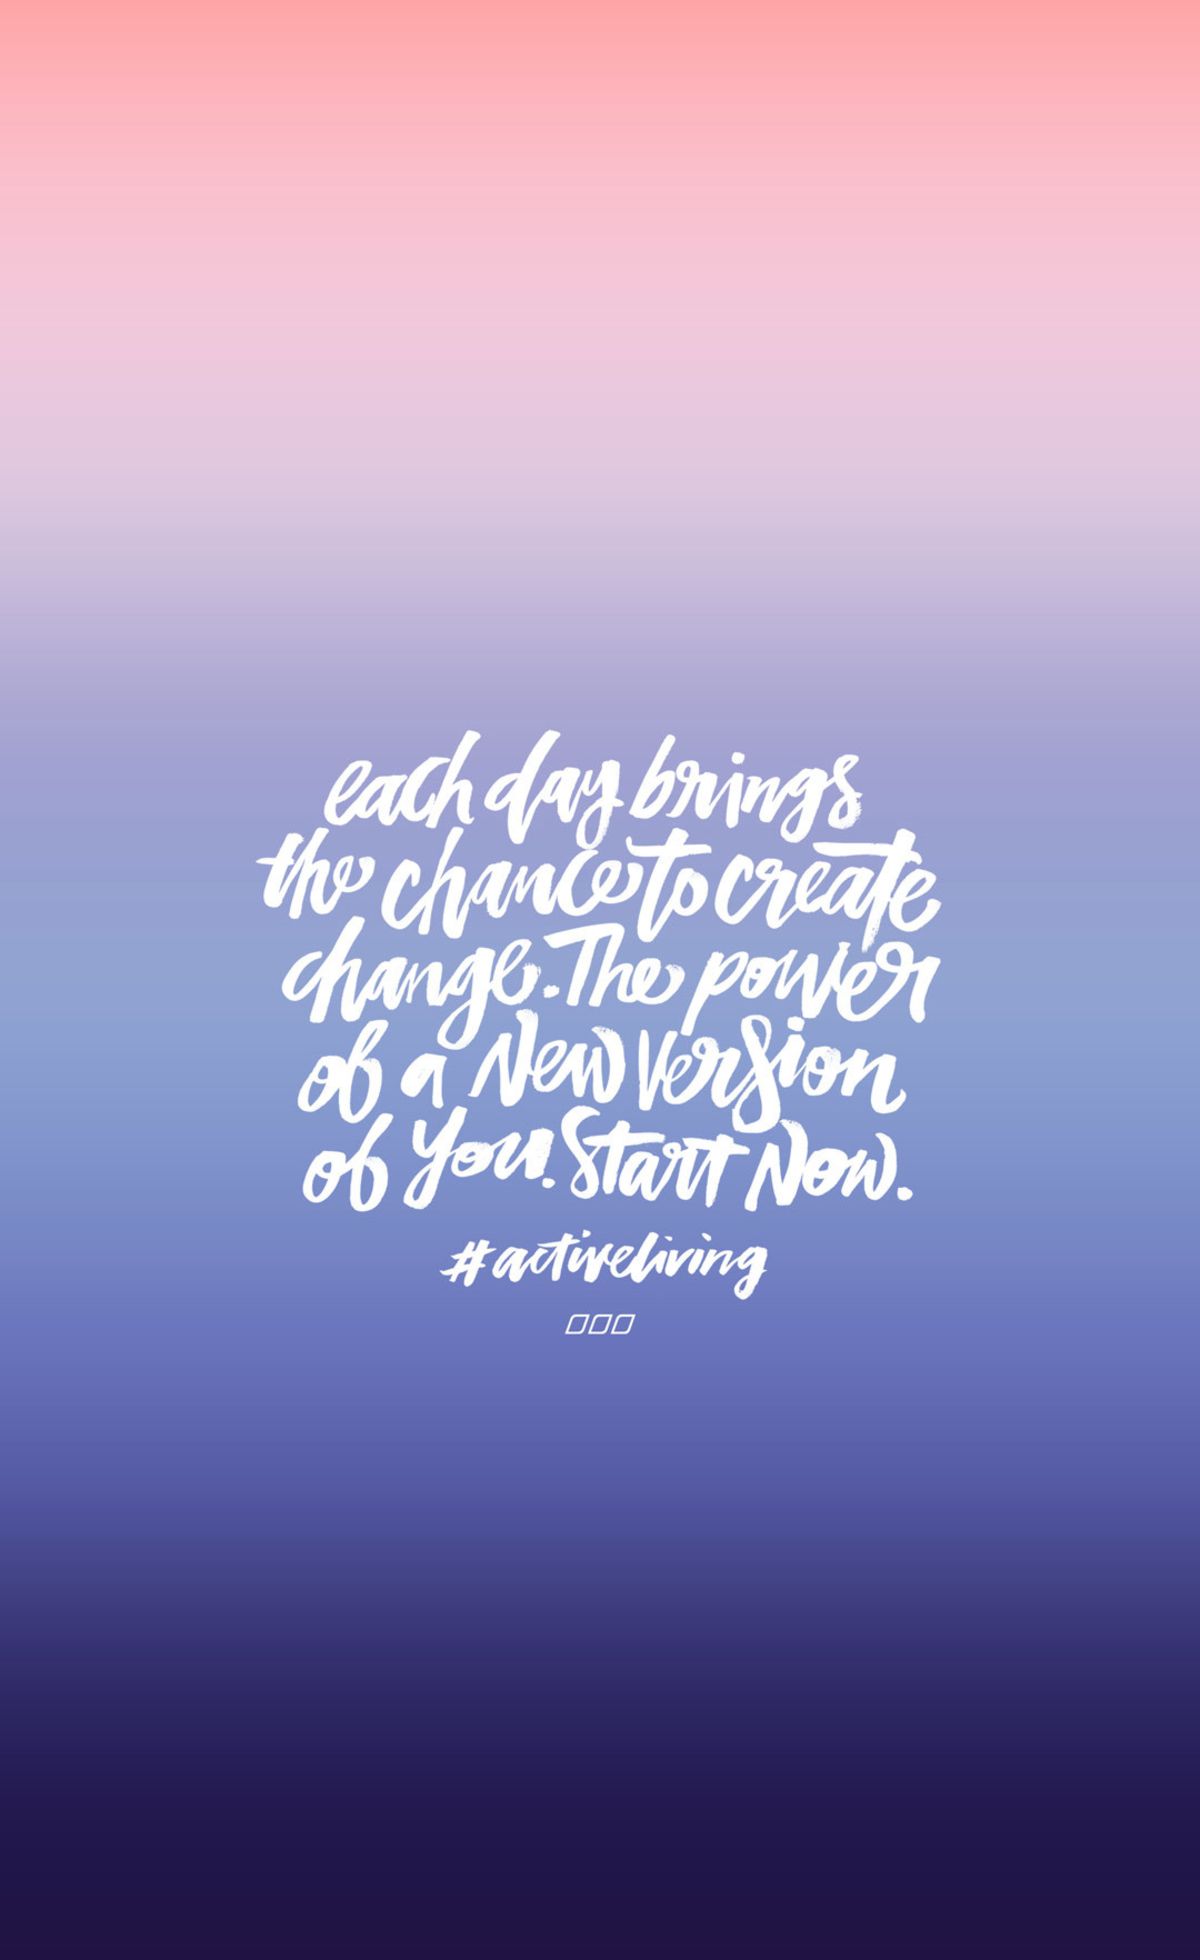 each day brings
the chance to create
change. The power
of a New Version
of You! Start Now.
#activeliving